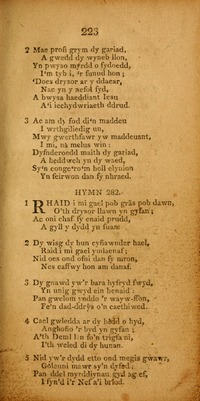 223
2 Mae profi grym dy gariad,
A gwedd dy wyneb llon,
Yn pwyso myrdd o fydoedd,
I'm tyb i, 'r funud hon;
'Does drysor ar y ddaear,
Nac yn y nefol fyd,
A bwysa haeddiant Iesu
A'i iechydwriaeth ddrud.
3 Ac am dy fod di'n madden
I wrthgiliedig un,
Mwy gwerthfawr yw maddeuant,
I mi, na melus win:
Dyfnderoedd maith dy gariad,
A heddwch yn dy waed,
Sy'n conge'ro'n holl elynion
Yn feirwon dan fy nhraed.
HYMN 282.
1 RHAID i mi gael pob gràs pob dawn,
O'th drysor llawn yn gyfan;
Ac oni chaf fy enaid prudd,
A gyll y dydd yn fuan:
2 Dy wisg dy hun cyfiawnder hael,
Raid i mi gael
Nid oes ond ofni dan fy mron,
Nes caffwy hon am danaf.
3 Dy gnawd yw'r bara hyfryd fwyd,
Yn unig gwyd ein henaid:
Pan gwelom ynddo 'r wayw-ffon,
Fe'n dad-ddrỳs o'n caethiwed.
4 Cael gwledda ar dy hedd o hyd,
Anghofio 'r byd yn gyfan;
A'th Deml lân fo'n trigfa ni,
I'th weled di dy hunan.
5 Nid yw'r dydd etto ond megis gwawr,
Goleuni mawr sy'n dyfod;
Pan ddel myrddiynau gyd ag ef,
I fyn'd i'r Nef a'i briod.